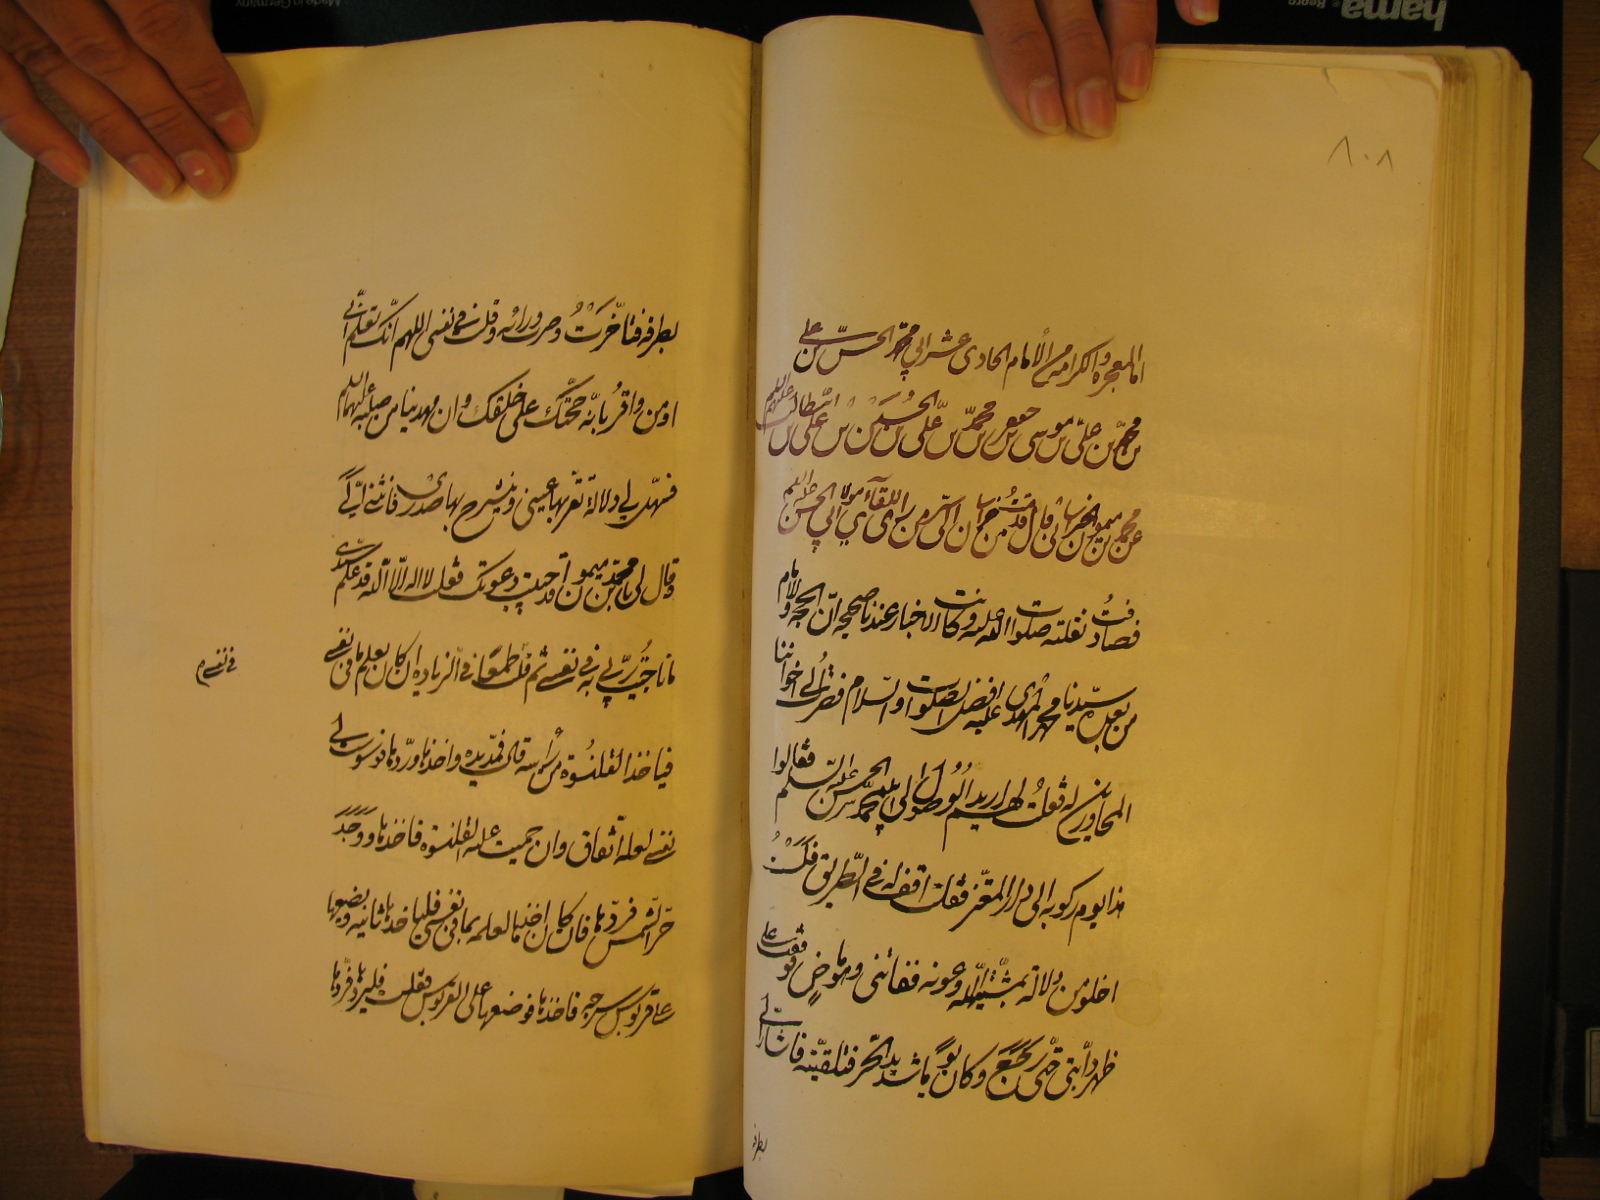 ٨٠٨
اما المعجزه والكرامه من الامام الحادى عشر ابى محمّد الحسن بن على
بن محمّد بن على بن موسى بن جعفر بن محمّد بن على بن الحسين بن على بن ابيطالب عليهم السلم
عن محمد بن ميمون الخراسانى قال قدمت من خراسان الى سر من راى للقاء مولاى ابى الحسن عليه السلم
فصادفتُ نغلته صلوات الله عليه وكانت الاخبار عندنا صحيحه انّ الحجه والامام
من بعده سيّدنا محمد المهدى عليه افضل الصلوات والسلام فصرتُ الى اخواننا
المجاورين له فقلتُ لهم اريد الوُصول الى ابى محمّد الحسن عليه السّلم فقالوا
هذا يوم ركوبه الى دار المعتز فقلت اقف له فى الطريق فلستُ
اخلو من دلالة بمشيّة الله وعونه ففاتنى وهو ماضٍ فوقفت على
ظهر دابّتى حتّى رَجَعَ وكان يومًا شديد الحّر فتلقيّته فاشار الىّ
بطرفه
بطرفه فتاخّرَتُ وصرت ورائه وقلت فى نفسى اللهم انّك تعلم انّى
اومن واقرُ بانّه حجّتك على خلقك وان مهدينا من صلبه عليهما السلام
فسهّل لى دلالة تقرّ بها عينى وينشرح بها صدرى فانثنى الىّ
وقال لى يا محمّد بن ميمون قد اجيبت دعوتك فقلت لا اله الّا الله قد علم سيّدى
ما ناجيتُ ربّى به فى نفسى ثم قلت طمعًا فى الزياده ان كان يعلم ما فى نفسى
فى نفسى م
فياخذ القلنسُوة من راسه قال فمدّ يده واخذها وردّها فوسوست لى
نفسى لعله اتّفاق وان حميت عليه القلنسوه فاخذها ووَجَدَ
حرّ الشمس فردّها فان كان اخذها لعلمه بما فى نفسى فلياخذها ثانيه ويضعها
على قربوس سرجه فاخذها فوضعها على القربوس فقلت فليردّها فردّها